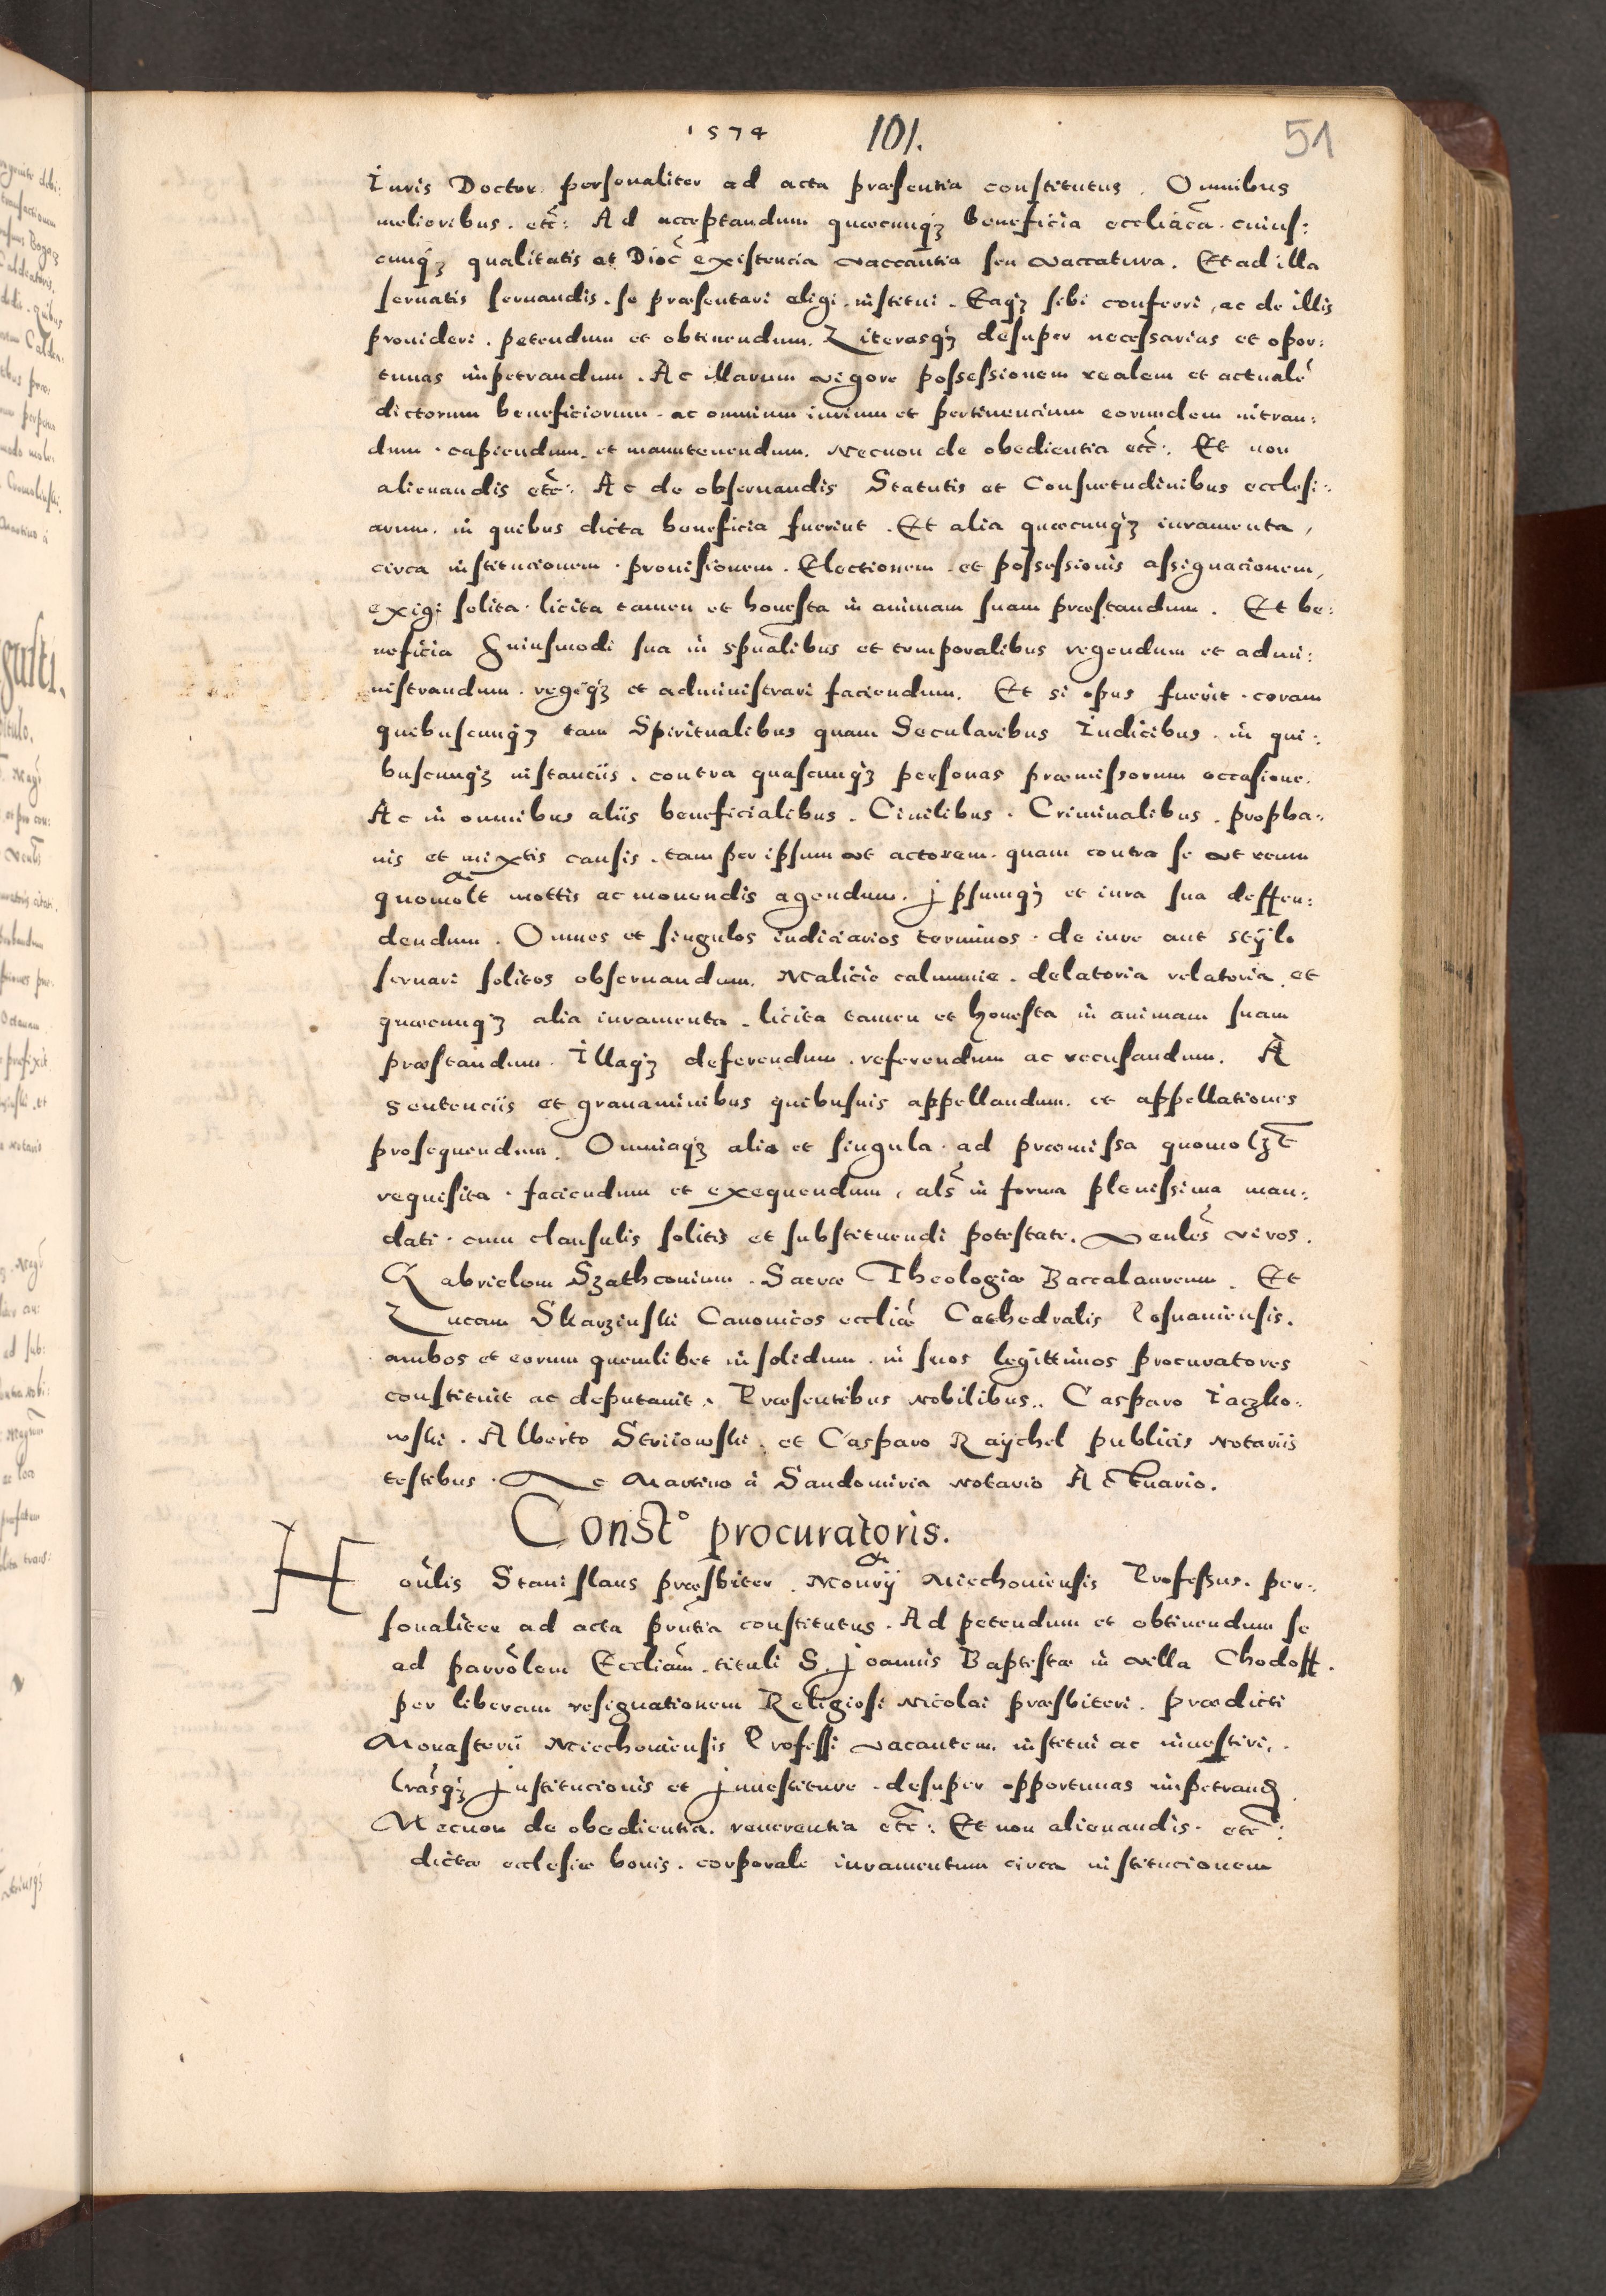 1574 101. 51
Iuris Doctor personaliter ad acta præsentia constitutus. Omnibus
melioribus. etc̄: Ad acceptandum quæcunqȝ beneficia eccliāca. cuius:
cunqȝ qualitatis et Dioc̄ existencia vaccantia seu vaccatura. Et ad illa
seruatis seruandis. se præsentari eligi. institui. Eaqȝ sibi conferri, ac de illis
prouideri. petendum et obtinendum. Literasqȝ desuper necessarias et opor:
tunas impetrandum. Ac illarum vigore possessionem realem et actualē
dictorum beneficiorum. ac omnium iurium et pertinencium eorundem intran:
dum. capiendum. et manutenendum. Necnon de obedientia etc̄:. Et non
alienandis etc̄: Ac de obseruandis Statutis et Consuetudinibus ecclesi:
arum. in quibus dicta beneficia fuerint. Et alia quæcunqȝ iuramenta,
circa institucionem. prouisionem. Electionem. et possessionis assignacionem,
exigi solita. licita tamen et honesta in animam suam præstandum. Et be:
neficia huiusmodi sua in spūalibus et temporalibus regendum et admi:
nistrandum. regiqȝ et administrari faciendum. Et si opus fuerit. coram
quibuscunqȝ tam Spiritualibus quam Secularibus Iudicibus. in qui:
buscunqȝ instanciis. contra quascunqȝ personas præmissorum occasione.
Ac in omnibus aliis beneficialibus. Ciuilibus. Criminalibus. propha:
nis et mixtis causis. tam per ipsum ut actorem. quam contra se ut reum
quomolt mottis ac mouendis agendum. jpsumqȝ et iura sua deffen:
dendum. Omnes et singulos iudiciarios terminos. de iure aut stÿlo
seruari solitos obseruandum. Malicie calumnie. delatoria relatoria. et
quæcunqȝ alia iuramenta. licita tamen et honesta in animam suam
præstandum. Illaqȝ deferendum. referendum ac recusandum. A
sentenciis et grauaminibus quibusuis appellandum. et appellationes
prosequendum. Omniaqȝ alia et singula. ad præmissa quomolȝt
requisita. faciendum et exequendum, als̄ in forma plenissima man:
dati. cum clausulis solitis et substituendi potestate. Venles̄ viros.
Gabrielem Szathconium. Sacræ Theologiæ Baccalaureum. Et
Lucam Skarzinski Canonicos eccliæ Cathedralis Posnaniensis.
ambos et eorum quemlibet in solidum. in suos legittimos procuratores
constituit ac deputauit. Præsentibus nobilibus.. Casparo Iaczko:
wski. Alberto Striiowski. et Casparo Raÿchel publicis Notariis
testibus. Me Martino à Sandomiria notario Actuario.
Const° procuratoris.
Hoūlis Stanislaus præsbiter. Monrÿ Miechouiensis Professus. per:
sonaliter ad acta prn̄tia constitutus. Ad petendum et obtinendum se
ad parrōlem Eccliam̄. tituli S. Joannis Baptistæ in villa Chodoff.
per liberam resignationem Religiosi Nicolai præsbiteri. prædicti
Monasterii Miechouiensis Professi vacantem. institui ac inuestiri.
Lrāsqȝ justitucionis et jnuestiture. desuper opportunas impetrand
Necnon de obedientia. reuerentia etc̄: Et non alienandis. etc̄:
dictæ ecclesiæ bonis. corporale iuramentum circa institucionem